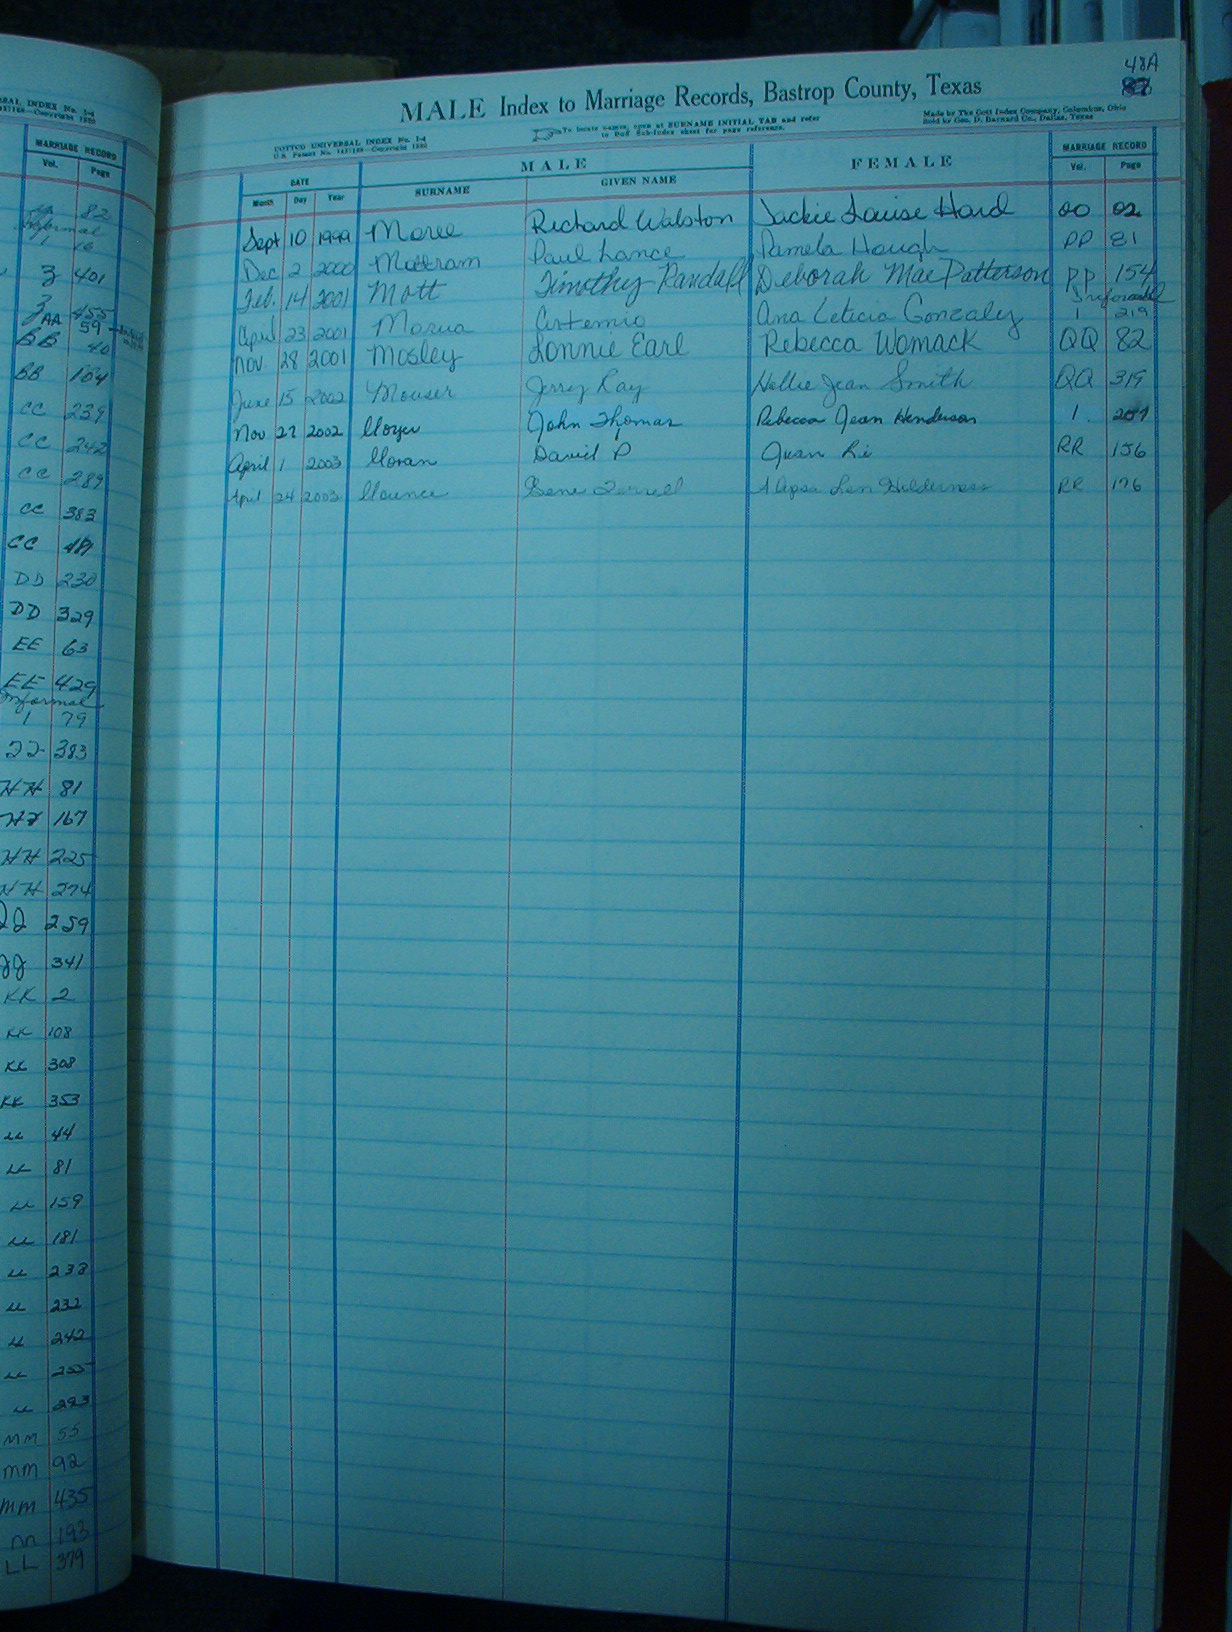 MARRIAGE RECORD
Vol. Page
82
16
Z 401
Z 455
AA 59
BB 40
BB 104
CC 239
CC 242
CC 289
CC 383
CC
DD 230
DD 329
EE 63
EE 429
Informal
1 79
383
HH 81
167
HH 225
HH 274
JJ 259
JJ 341
KK 2
KK 108
KK 308
KK 353
LL 44
LL 81
LL 159
LL 181
LL 233
LL 232
LL 242
LL 255
LL 293
MM 55
MM 92
MM 435
nn 193
LL 379
48A
MALE Index to Marriage Records, Bastrop County, Texas
COTTCO UNIVERSAL INDEX No. 1-4
To locate names, open at SURNAME INITIAL TAB and refer
to Buff Sub-Index sheet for page reference.
Made by The Cott Index Company, Columbus, Ohio
Sold by Geo. D. Barnard Co., Dallas, Texas
DATE MALE FEMALE MARRIAGE RECORD
Month Day Year SURNAME GIVEN NAME Vol. Page
Sept 10 1999 Moree Richard Walston Jackie Louise Hord OO 02
Dec 2 2000 Mattram Paul Lance Pamela Hough PP 81
Feb. 14 2001 Mott Timothy Randall Deborah Mae Patterson PP 154
Informal
April 23 2001 Morua Artemio Ana Leticia Gonzalez 1 219
Nov. 28 2001 Mosley Lonnie Earl Rebecca Womack QQ 82
June 15 2002 Mouser Jerry Ray Nellie Jean Smith QQ 319
Nov 27 2002 Moyer John Thomas Rebecca Jean Henderson 1
April 1 2003 Moran David P Juan Li RR 156
April 24 2003 Mounce Gene Terrell RR 176